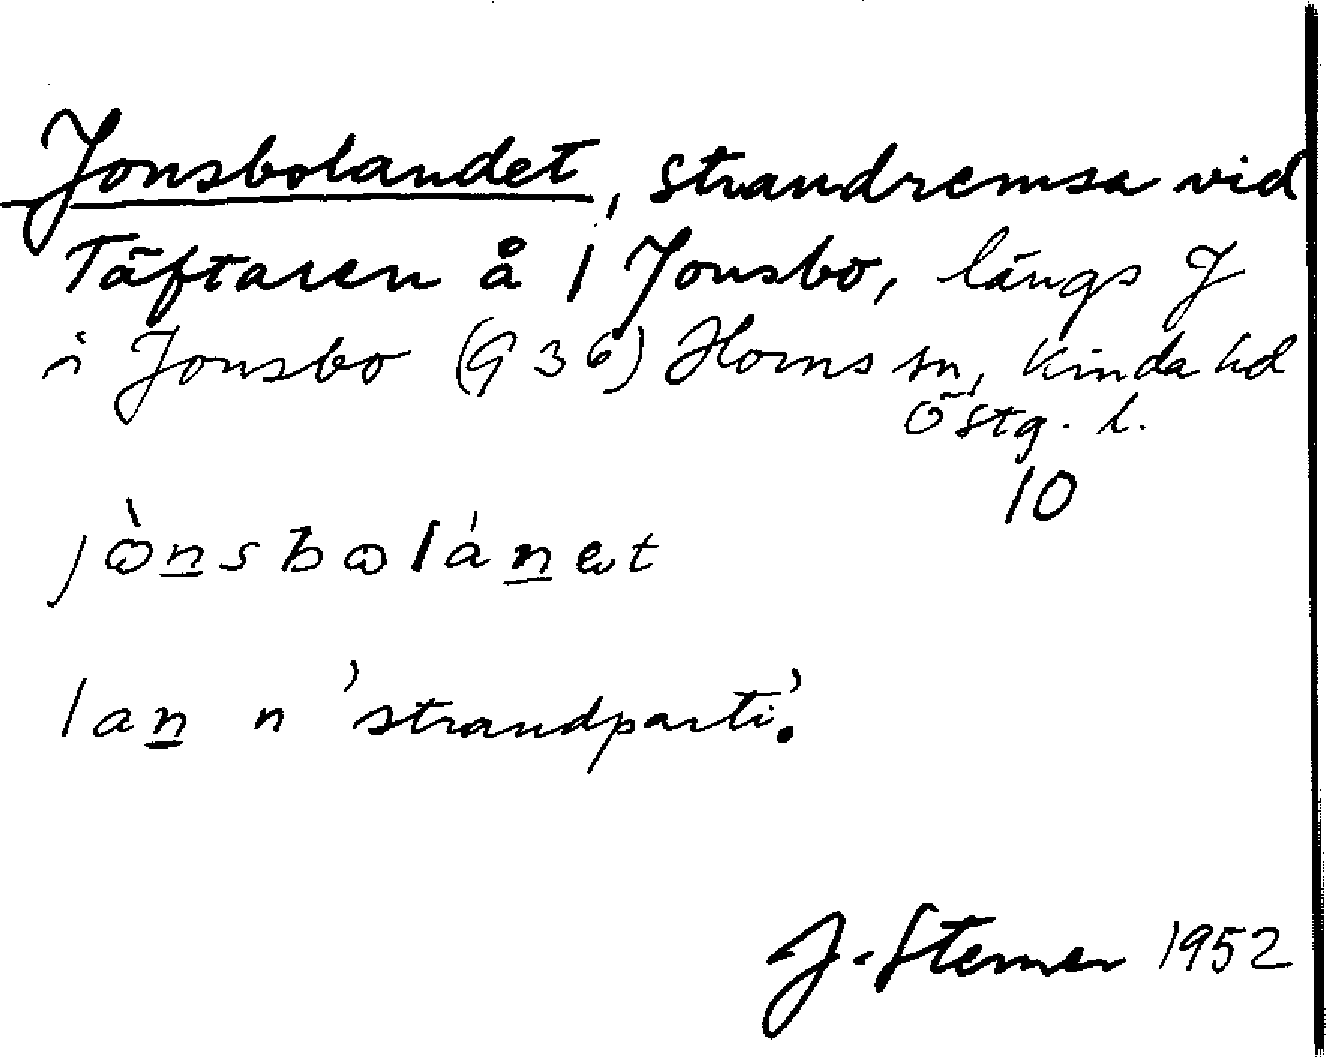 Jonsbolandet, strandremsa vid
Täftaren å / Jonsbo, längs J
i Jonsbo (G 36) Horns sn, Kinda hd
Östg. l.
10
jònsbolánet
lan n 'strandparti'.
J. Sterner 1952